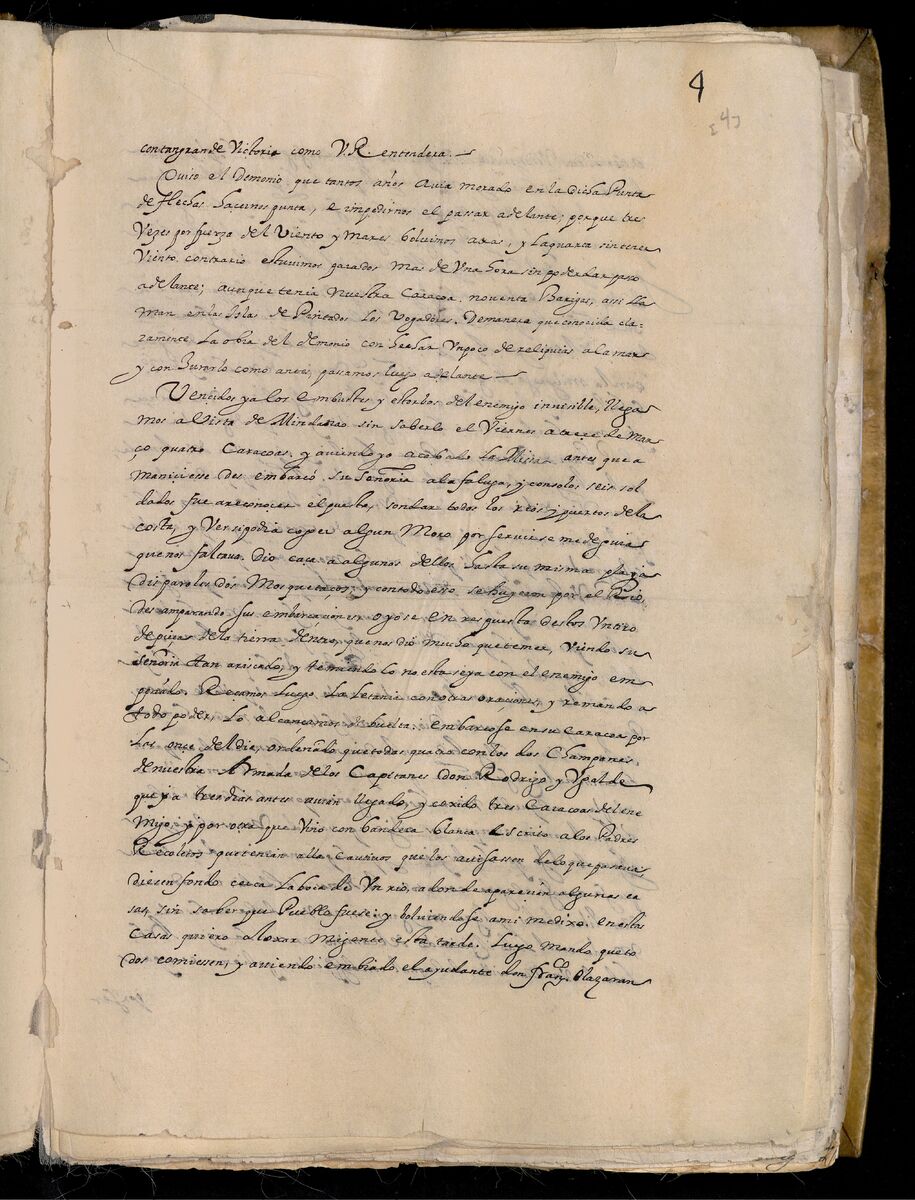 4
contangrande Victoria como V.R. entendera.
Quiso el Demonio que tantos años avia morado en la dicha Punta
de flechas hacernos punta, e impedirnos el passar adelante; porque tres
Vezes por fuerza del Viento y mares bolvimos atras, y la quarta sin tener
Viento contrario estuvimos parados mas de Vna hora sin poder dar passo
adelante; aunque tenia nuestra Caracoa, noventa Barigas, assi lla
man en las Islas de Pintados los Vogadores. De manera que conocida cla-
ramente la obra del demonio con hechar Vn poco de reliquias a la mar
y con jurarlo como antes, passamos luego adelante
Vencidos ya los embustes y estorbos del enemigo invisible, llega
mos a Vista de Mindanao sin saberlo el Viernes a trece de Mar
ço quatro Caracoas, y aviendo yo acabado la Missa antes que a
maneciesse desembarcó su Señoria a la falupa, y con solos seis sol
dados fue a reconocer el puesto, sondar todos los rios y puertos de la
costa, y Ver si podia coper algun Moro por servirse me de guia
que nos faltava. Dio caça a algunos dellos hasta su misma playa
disparoles dos Mosquetaços, y con todo esso se huyeron por el Rio,
desamparando sus embarcaciones oyose en respuesta destos Vn tiro
de pieza de la tierra dentro, que nos dió mucho que temer, Viendo su
Señoria tan arriscado, y temiendo lo no estuviesse ya con el enemigo em
peñado. Reçamos luego la letania con otras oraciones, y remando a
todo poder, lo alcançamos de buelta. embarcose en su Caracoa por
los once del dia, ordenando que todos quatro con los dos Champanes
de nuestra Armada de los Capitanes Don Rodrigo y Vgalde
que ya tres dias antes avian llegado, y cogido tres Caracoas del ene
migo, y por otra que Vino con bandera blanca escrito a los Padres
Recoletos que tenian alla cautivos que los avisassen de lo que passava,
diesen fondo cerca la boca de Vn rio, a donde aparecian algunas ca
sas, sin saber que Pueblo fuese: y bolviendose a mi me dixo. en estas
casas quiero aloxar mi gente esta tarde. Luego mandó que to
dos comiessen, y aviendo embiado el ayudante don Fran.co Olazaran